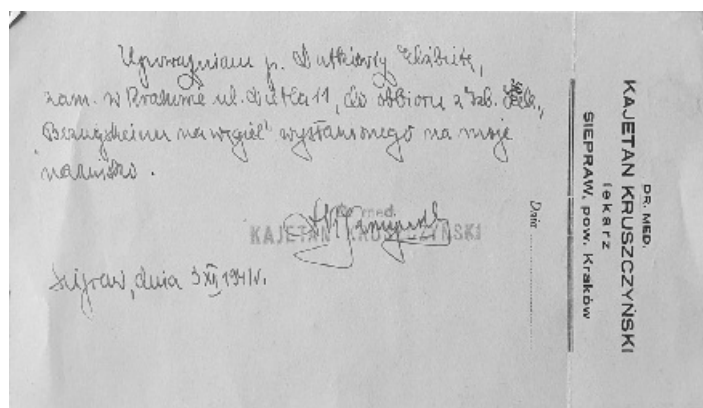 Upoważniam p. Dutkiewicz Elżbietę,
zam. w Krakowie ul. Dietla 11, do odbioru z Izb. Lek.,
"Bezugschein na węgiel" wystawionego na moje
nazwisko.
Dr med.
KAJETAN KRUSZCZYŃSKI
Siepraw, dnia 3 XII 1941 r.
DR. MED.
KAJETAN KRUSZCZYŃSKI
lekarz
SIEPRAW, pow. Kraków
Dnia